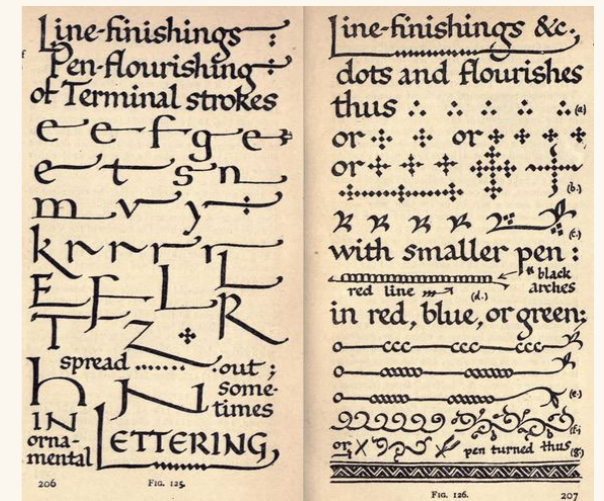 Line-finishings
Pen-flourishing
of Terminal strokes
e e f g e
e t s n
m v y
k r r r r
E F L L
T Z R
spread ....... out ;
h N some-
times
IN
orna-
mental LETTERING,
206 FIG. 125.
Line-finishings &c.,
dots and flourishes
thus (a)
or or
or (b.)
(c.)
with smaller pen :
black
arches
red line (d.)
in red, blue, or green:
ccc ccc ccc
(e.)
(f.
or, pen turned thus (g.)
FIG. 126. 207